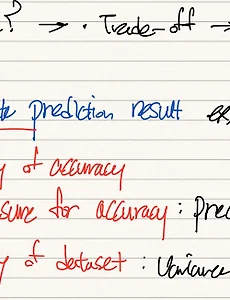 ? → · Trade-off →
prediction result
y of accuracy
sure for accuracy : pred
y of dataset : Variance